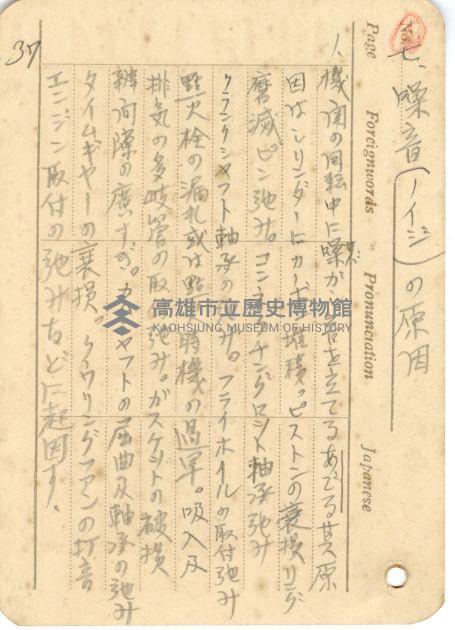 七、噪音(ノイジ)の原因
Page Foreignwords & Pronunciation Japanese
1、機関の回転中に噪が 音を立てる
因はシリンダーにカーボン堆積。ピストンの衰損 リング
磨滅ピン弛み。コンネクチングロット軸承弛み
クランクシャフト軸承の弛み。フライホイルの取付弛み
點火栓の漏礼或は點火時機の過早。吸入及
排気の多岐管の取付弛み。ガスケットの破損
瓣間隙の廣すぎ。カムシャフトの屈曲及軸承の弛み
タイムギヤーの衰損。クウリングファンの打音
エンジン取付の弛みなどに起因す、
37
高雄市立歷史博物館
KAOHSIUNG MUSEUM OF HISTORY